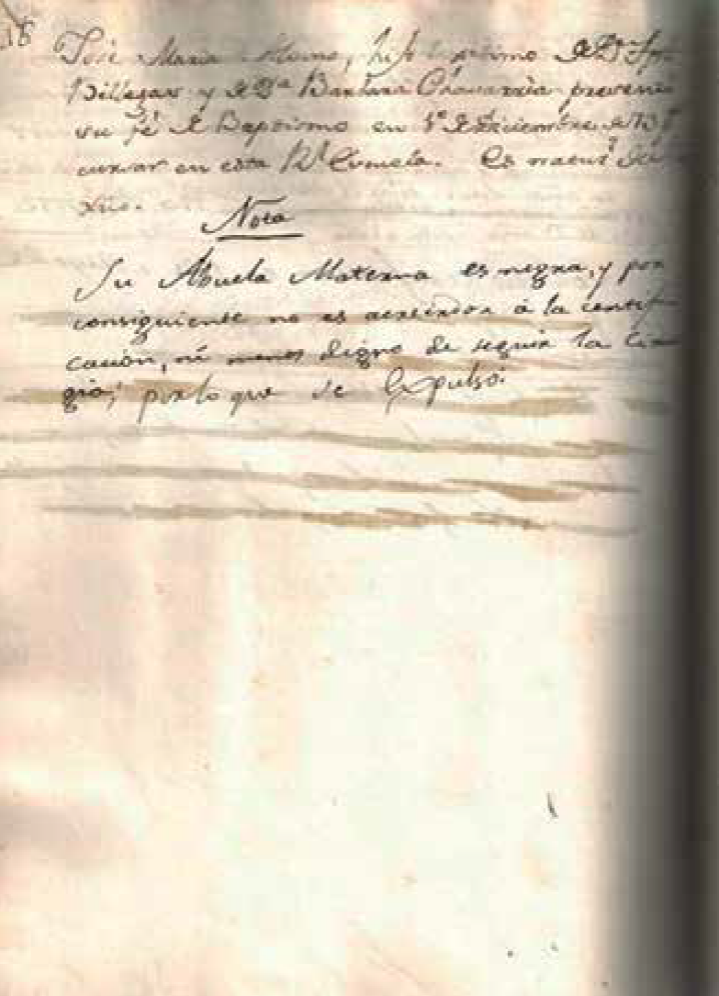 18
José Maria Moreno, hijo lextimo de Dn
Billegas y de Da Barbara Chavarria
su fé de Baptismo en 1o de Diciembre de
cursar en esta Rl Escuela. Es natural
Nota
Su Abuela Materna es negra, y por
consiguiente no es acrehedor á la certifi
cacion, ni menos digno de seguir la Ciru
gia; por lo que se Expulsó.